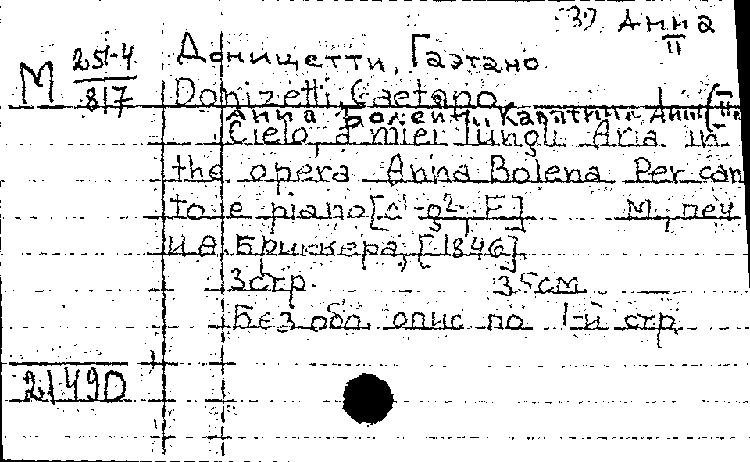 3) Анна
II
M 251-4
817
Доницетти, Гаэтано
Donizetti, Gaetano
Анна Болейн. Каватина Анны (II
Cielo, a miei lungli Aria in
the opera Anna Bolena Per can
to e piano [c¹-g², F] М., печ
И.А. Брискера, [1846]
3 стр. 35 см
Без обл. опис по 1-й стр
21490